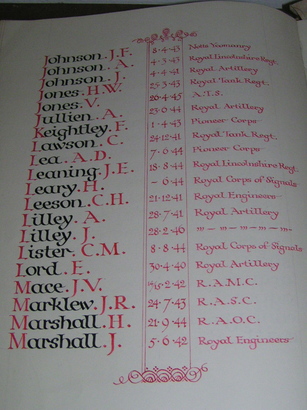 Johnson. J.F. 8·4·43 Notts Yeomanry
Johnson. A. 4·3·43 Royal Lincolnshire Regt.
Johnson. J. 4·4·41 Royal Artillery
Jones. H.W. 25·3·43 Royal Tank Regt.
Jones. V. 20·4·45 A.T.S.
Jullien. A. 23·6·44 Royal Artillery
Keightley. F. 1·4·43 Pioneer Corps
Lawson. C. 24·12·41 Royal Tank Regt.
Lea. A.D. 7·6·44 Pioneer Corps
Leaning. J.E. 18·8·44 Royal Lincolnshire Regt.
Leary. H. – 6·44 Royal Corps of Signals
Leeson. C.H. 21·12·41 Royal Engineers
Lilley. A. 28·7·41 Royal Artillery
Lilley. J. 28·2·46
Lister. C.M. 8·8·44 Royal Corps of Signals
Lord. E. 30·4·40 Royal Artillery
Mace. J.V. 2·42 R.A.M.C.
Marklew. J.R. 24·7·43 R.A.S.C.
Marshall. H. 21·9·44 R.A.O.C.
Marshall. J. 5·6·42 Royal Engineers